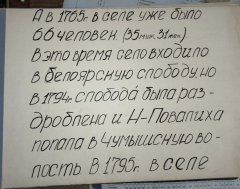 А в 1765г. в селе уже было
66 человек. (35 муж. 31 жен.)
В это время село входило
в белоярскую слободу, но
в 1794г. слобода была раз-
дроблена и Н-Повалиха
попала в Чумышскую во-
лость. В 1795г. в селе